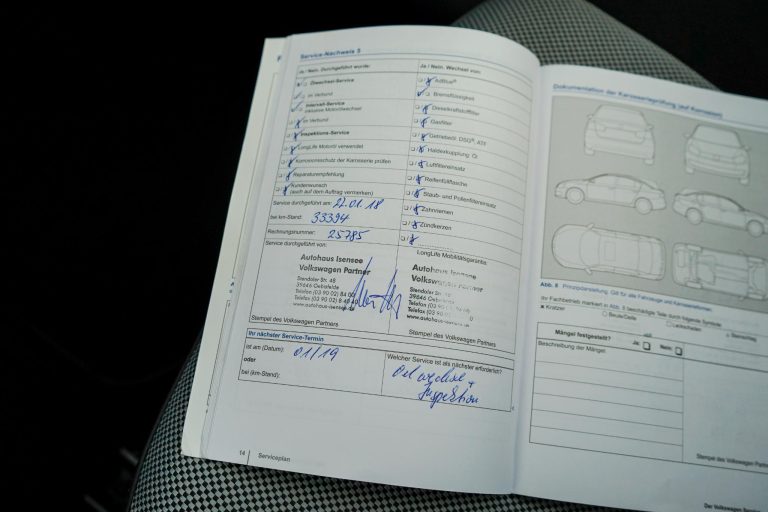 Service-Nachweis 5
Ja / Nein. Durchgeführt wurde:
Ölwechsel-Service
im Verbund
Intervall-Service
inklusive Motorölwechsel
im Verbund
Inspektions-Service
LongLife Motoröl verwendet
Korrosionsschutz der Karosserie prüfen
Reparaturempfehlung
Kundenwunsch
(auch auf dem Auftrag vermerken)
Service durchgeführt am: 22.01.18
bei km-Stand: 33394
Rechnungsnummer: 25785
Service durchgeführt von:
Autohaus Isensee
Volkswagen Partner
Stendaler Str. 48
39646 Oebisfelde
Telefon (03 90 02) 84 00
Telefax (03 90 02) 8 40 40
www.autohaus-isensee.de
Stempel des Volkswagen Partners
Ja / Nein. Wechsel von:
AdBlue®
Bremsflüssigkeit
Dieselkraftstofffilter
Gasfilter
Getriebeöl: DSG®, ATF
Haldexkupplung: Öl
Luftfiltereinsatz
Reifenfüllflasche
Staub- und Pollenfiltereinsatz
Zahnriemen
Zündkerzen
LongLife Mobilitätsgarantie
Autohaus Isensee
Volkswagen Partner
Stendaler Str. 48
39646 Oebisfelde
Telefon (03 90 02)
Telefax (03 90 02)
www.autohaus-isensee
Stempel des Volkswagen Partners
Ihr nächster Service-Termin
ist am (Datum): 01/19
oder
bei (km-Stand):
Welcher Service ist als nächster erforderlich?
Oelwechsel +
Inspektion
14 Serviceplan
Dokumentation der Karosserieprüfung (auf Korrosion)
Abb. 5 Prinzipdarstellung. Gilt für alle Fahrzeuge und Karosserieformen.
Ihr Fachbetrieb markiert in Abb. 5 beschädigte Teile durch folgende Symbole
Kratzer
Beule/Delle
Lackschaden
Mängel festgestellt? Ja: Nein:
Beschreibung der Mängel:
Stempel des Volkswagen Partners
Der Volkswagen